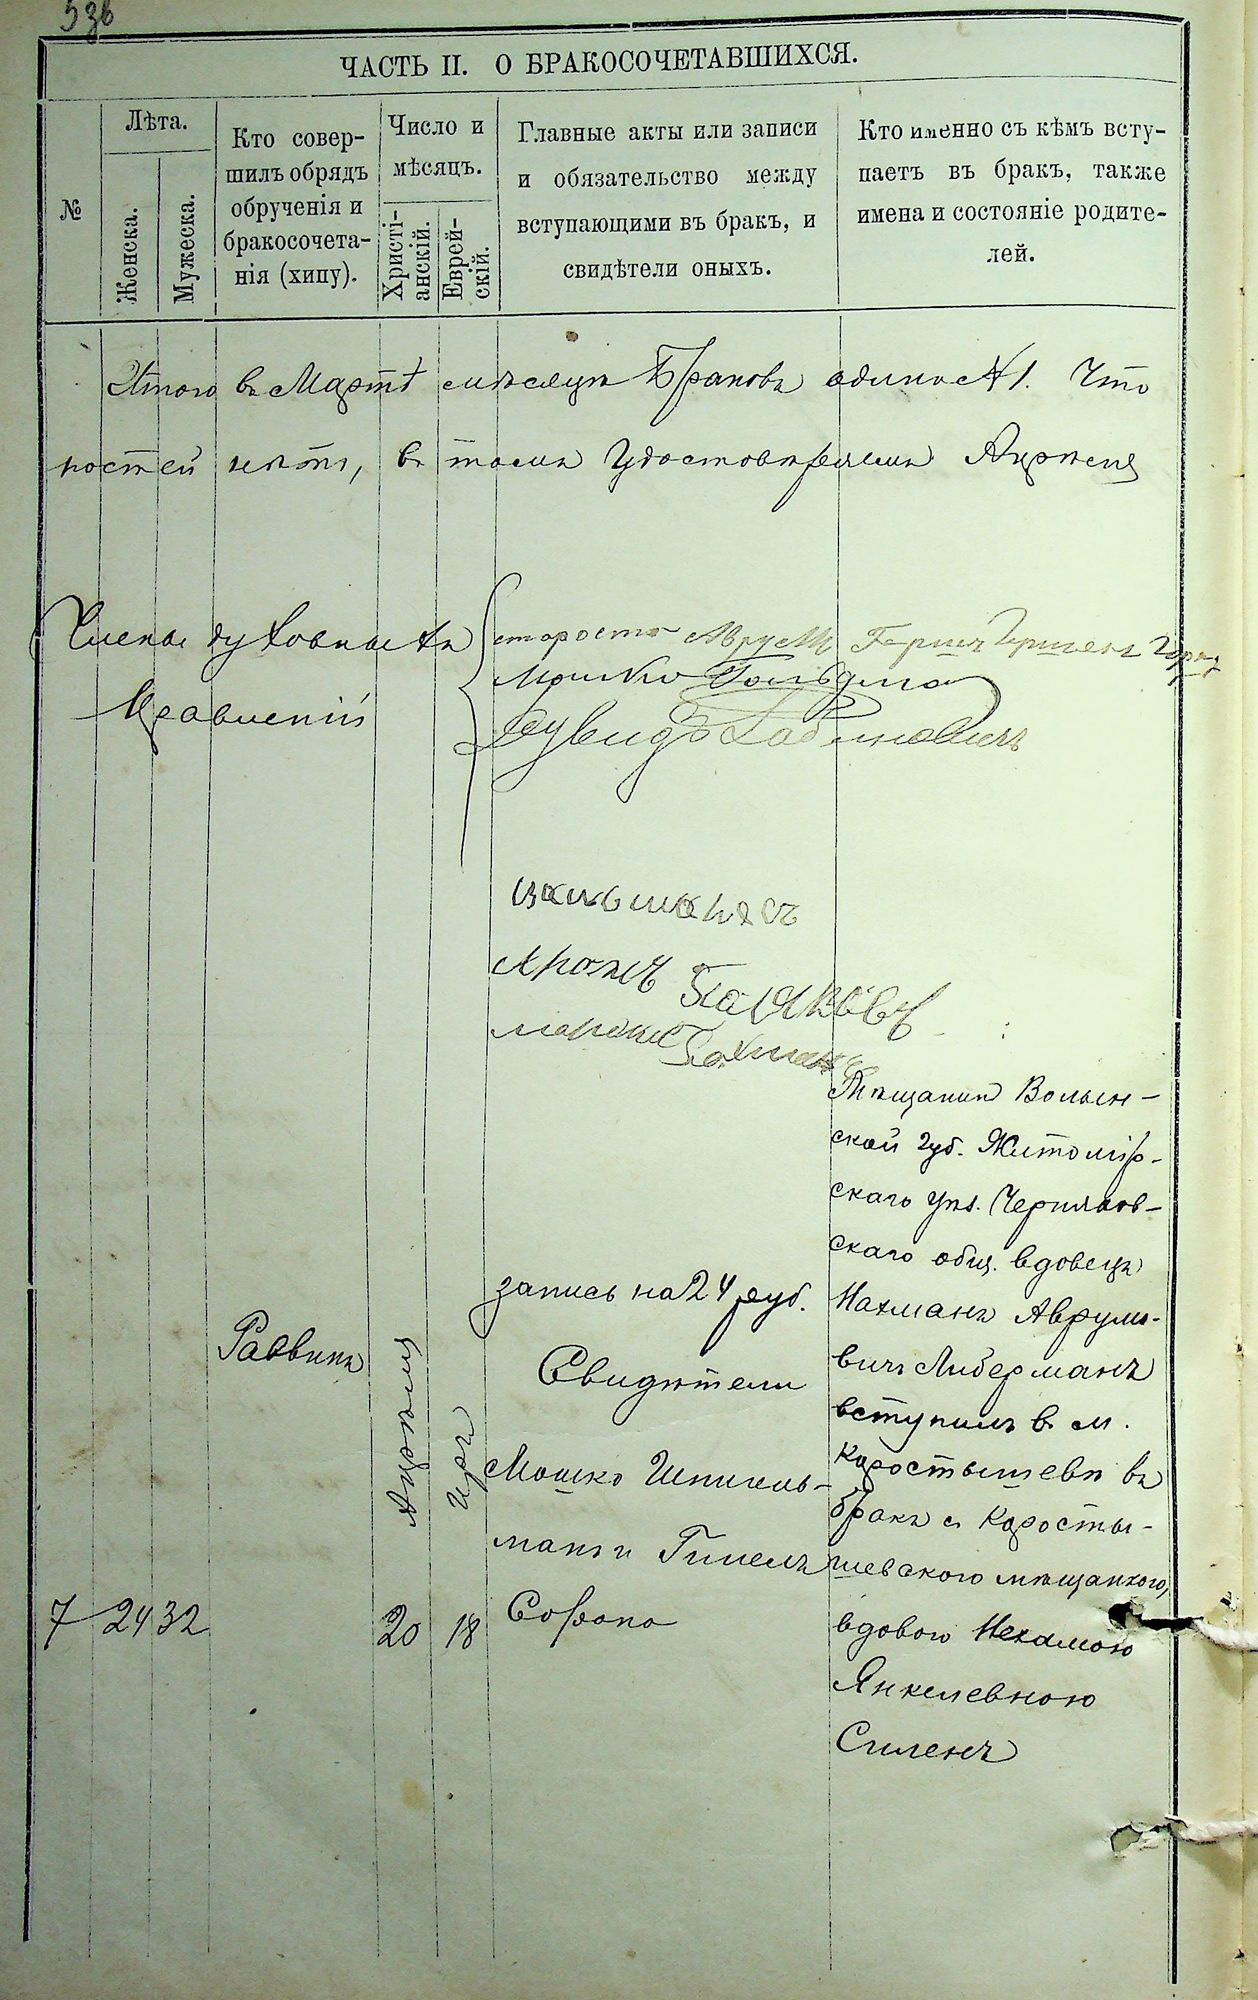 536
ЧАСТЬ II. О БРАКОСОЧЕТАВШИХСЯ.
№
Лѣта.
Женска.
Мужеска.
Кто совер-
шилъ обрядъ
обрученія и
бракосочета-
нія (хипу).
Число и
мѣсяцъ.
Христі-
анскій.
Еврей-
скій.
Главные акты или записи
и обязательство между
вступающими въ бракъ, и
свидѣтели оныхъ.
Кто именно съ кѣмъ всту-
паетъ въ бракъ, также
имена и состояніе родите-
лей.
Итого въ Мартѣ мѣсяцѣ Браковъ одинъ № 1. Что
ностей нѣтъ, въ томъ удостовѣряемъ
Члены духовныхъ
Правленій
староста Аврумъ
Мошко Гольдма
Дувидъ Рабиновичъ
Аронъ
7
24
32
Раввинъ
Апрѣля
20
Иръ
18
запись на 24 руб.
Свидѣтели
Мошко Шпигель-
манъ и Гилель
Сорока
Мѣщанинъ Волын-
ской губ. Житомір-
скаго уѣз. Черняхов-
скаго общ. вдовецъ
Нахманъ Аврумо-
вичъ Либерманъ
вступилъ въ м.
Коростышевѣ въ
бракъ съ Коросты-
шевского мѣщанкого,
вдовою Нехамою
Янкелевною